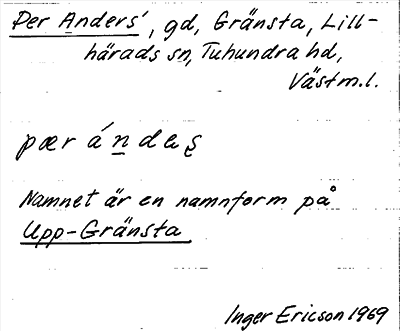 Per Anders', gd, Gränsta, Lill-
härads sn, Tuhundra hd,
Västm.l.
pær ándeʂ
Namnet är en namnform på
Upp-Gränsta
Inger Ericson 1969